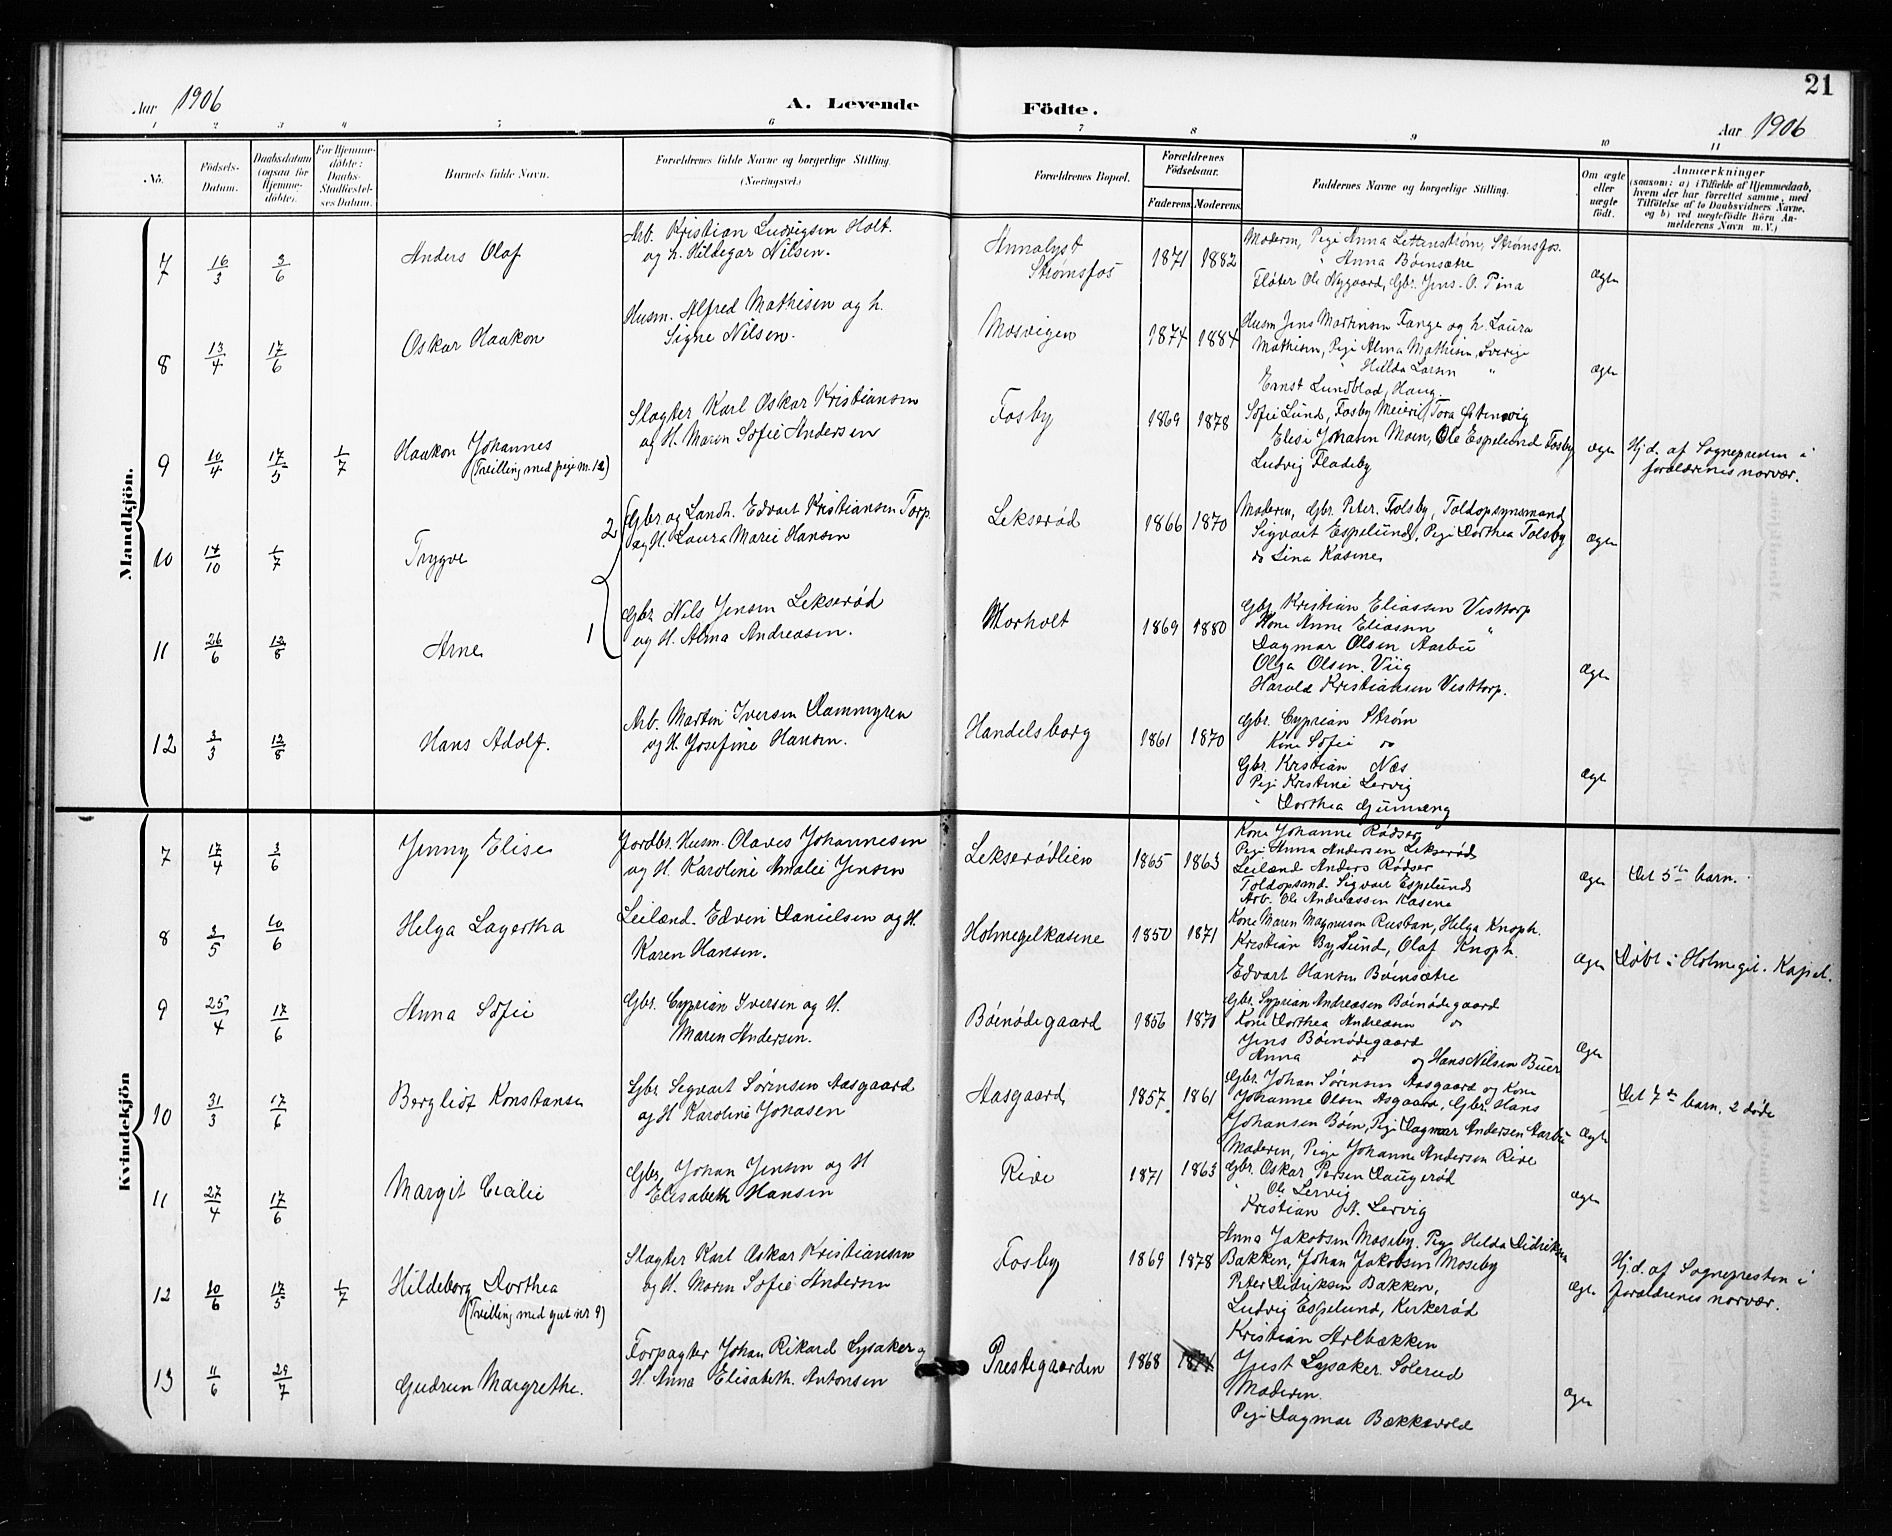 21
Aar 1906
A. Levende Födte.
Aar 1906
1 2 3 4 5 6 7 8 9 10 11
No.
Födsels-Datum.
Daabsdatum (ogsaa for Hjemme-döbte).
For Hjemme-döbte: Daabs-Stadfæstel-ses Datum.
Barnets fulde Navn.
Forældrenes fulde Navne og borgerlige Stilling. (Næringsvei.)
Forældrenes Bopæl.
Forældrenes Födselsaar.
Faderens. Moderens.
Faddernes Navne og borgerlige Stilling.
Om ægte eller uægte födt.
Anmærkninger
(saasom: a) i Tilfælde af Hjemmedaab, hvem der har forrettet samme, med Tilföielse af to Daabsvidners Navne, og b) ved uægtefödte Börn An-melderens Navn m. V.)
Mandkjön.
7 16/3 3/6 Anders Olaf
Arb. Kristian Ludvigsen Holt.
og h. Hildegar Nilsen.
Strømsfos 1871 1882
Moderen, Pige Anna Lettenstrøm, Strømsfos.
" Anna Bøensætre
Fløter Ole Nygaard, Gbr. Jens O. Tina
ægte
8 13/4 17/6 Oskar Haakon
Husm. Alfred Mathisen og h.
Signe Nilsen.
Mosvigen 1874 1884
Husm Jens Martinsen Tange og h. Laura
Mathisen, Pige Alma Mathisen, Sverige
" Hilda Larsen "
Ernst Lundblad, Haug.
ægte
9 10/4 17/5 1/7 Haakon Johannes
(Tvilling med pige nr. 12)
Slagter Karl Oskar Kristiansen
og H. Maren Sofie Andersen
Fosby 1869 1878
Sofie Lund, Fosby Meieri, Tora Stenvig
Elise Johann Moen, Ole Espelund Fosby
Ludvig Fladeby
ægte
Hj.d. af Sognepresten i
forældrenes nærvær.
10 14/10 1/7 Trygve
2 Gbr og Landh. Edvart Kristiansen Torp.
og H. Laura Marie Hansen
Lekserød 1866 1870
Moderen, Gbr. Peter Folsby, Toldopsynsmand
Sigvart Espelund, Pige Dorthea Tolsby
do Lina Kasene
ægte
11 26/6 12/8 Arne
1 Gbr. Nils Jensen Lekserød
og H. Alma Andreasen.
Morholt 1869 1880
Gbr. Kristian Eliassen Visttorp
Kone Anne Eliassen "
Dagmar Olsen Aarbu
Olga Olsen Viig
Harold Kristiansen Visttorp.
ægte
12 3/3 12/8 Hans Adolf.
Arb. Martin Iversen Dammyren
og H. Josefine Hansen.
Handelsborg 1861 1870
Gbr. Cyprian Strøm
Kone Sofie do
Gbr. Kristian Næs
Pige Kristine Lervig
" Dorthea Gunneng
ægte
Kvindekjön
7 17/4 3/6 Jenny Elise
Jordbr. Husm. Olaves Johannesen
og H. Karoline Amalie Jensen
Lekserødlien 1865 1863
Kone Johanne Rødser
Pige Anna Andersen Lekserød
Leilænd Anders Rødser
Toldopsmd. Sigvart Espelund
Arb. Ole Andreassen Kasene
ægte
Det 5te barn.
8 3/5 10/6 Helga Lagertha
Leilænd. Edvin Danielsen og H.
Karen Hansen.
Holmegilkasene 1850 1871
Kone Maren Magnuson Rustan, Helga Knoph.
Kristian By, Lund, Olaf Knoph.
Edvart Hansen Bøensætre
ægte
Døbt i Holmegil. Kapel.
9 25/4 17/6 Anna Sofie
Gbr. Cyprian Iversen og H.
Maren Andersen.
Bøenødegaard 1856 1870
Gbr. Syprian Andreasen Bøenødegaard
Kone Dorthea Andreasen do
Jens Bøenødegaard
Anna do og Hans Nilsen Buer
ægte
10 31/3 17/6 Bergliot Konstanse
Gbr. Segvart Sørensen Aasgaard
og H. Karoline Jonasen
Aasgaard 1857. 1861
Gbr. Johan Sørensen Aasgaard og Kone
Johanne Olsen Asgaard, Gbr. Hans
Johansen Bøen, Pige Dagmar Andersen Aarbu
ægte
Det 7de barn, 2 døde
11 27/4 17/6 Margit Cecalie
Gbr. Johan Jensen og H
Elisabeth Hansen
Rive 1871 1863
Moderen, Pige Johanne Andersen Rive
Gbr. Oskar Persen Daugerød
" Ole Lervig
Kristian A. Lervig
ægte
12 10/6 17/5 1/7 Hildeborg Dorthea
(Tvilling med gut nr 9)
Slagter Karl Oskar Kristiansen
og H. Maren Sofie Andersen
Fosby 1869 1878
Anna Jakobsen Moseby. Pige Hilda Didriksen
Bakken, Johan Jakobsen Moseby
Peter Didriksen Bakken,
Ludvig Espelund, Kirkerød
ægte
Hj.d. af Sognepresten i
forældrenes nærvær.
13 11/6 29/7 Gudrun Margrethe.
Forpagter Johan Rikard Lysaker og
H. Anna Elisabeth. Antonsen
Prestegaarden 1868 1874
Kristian Holbækken
Just Lysaker. Solerud
Moderen.
Pige Dagmar Bækkevold
ægte